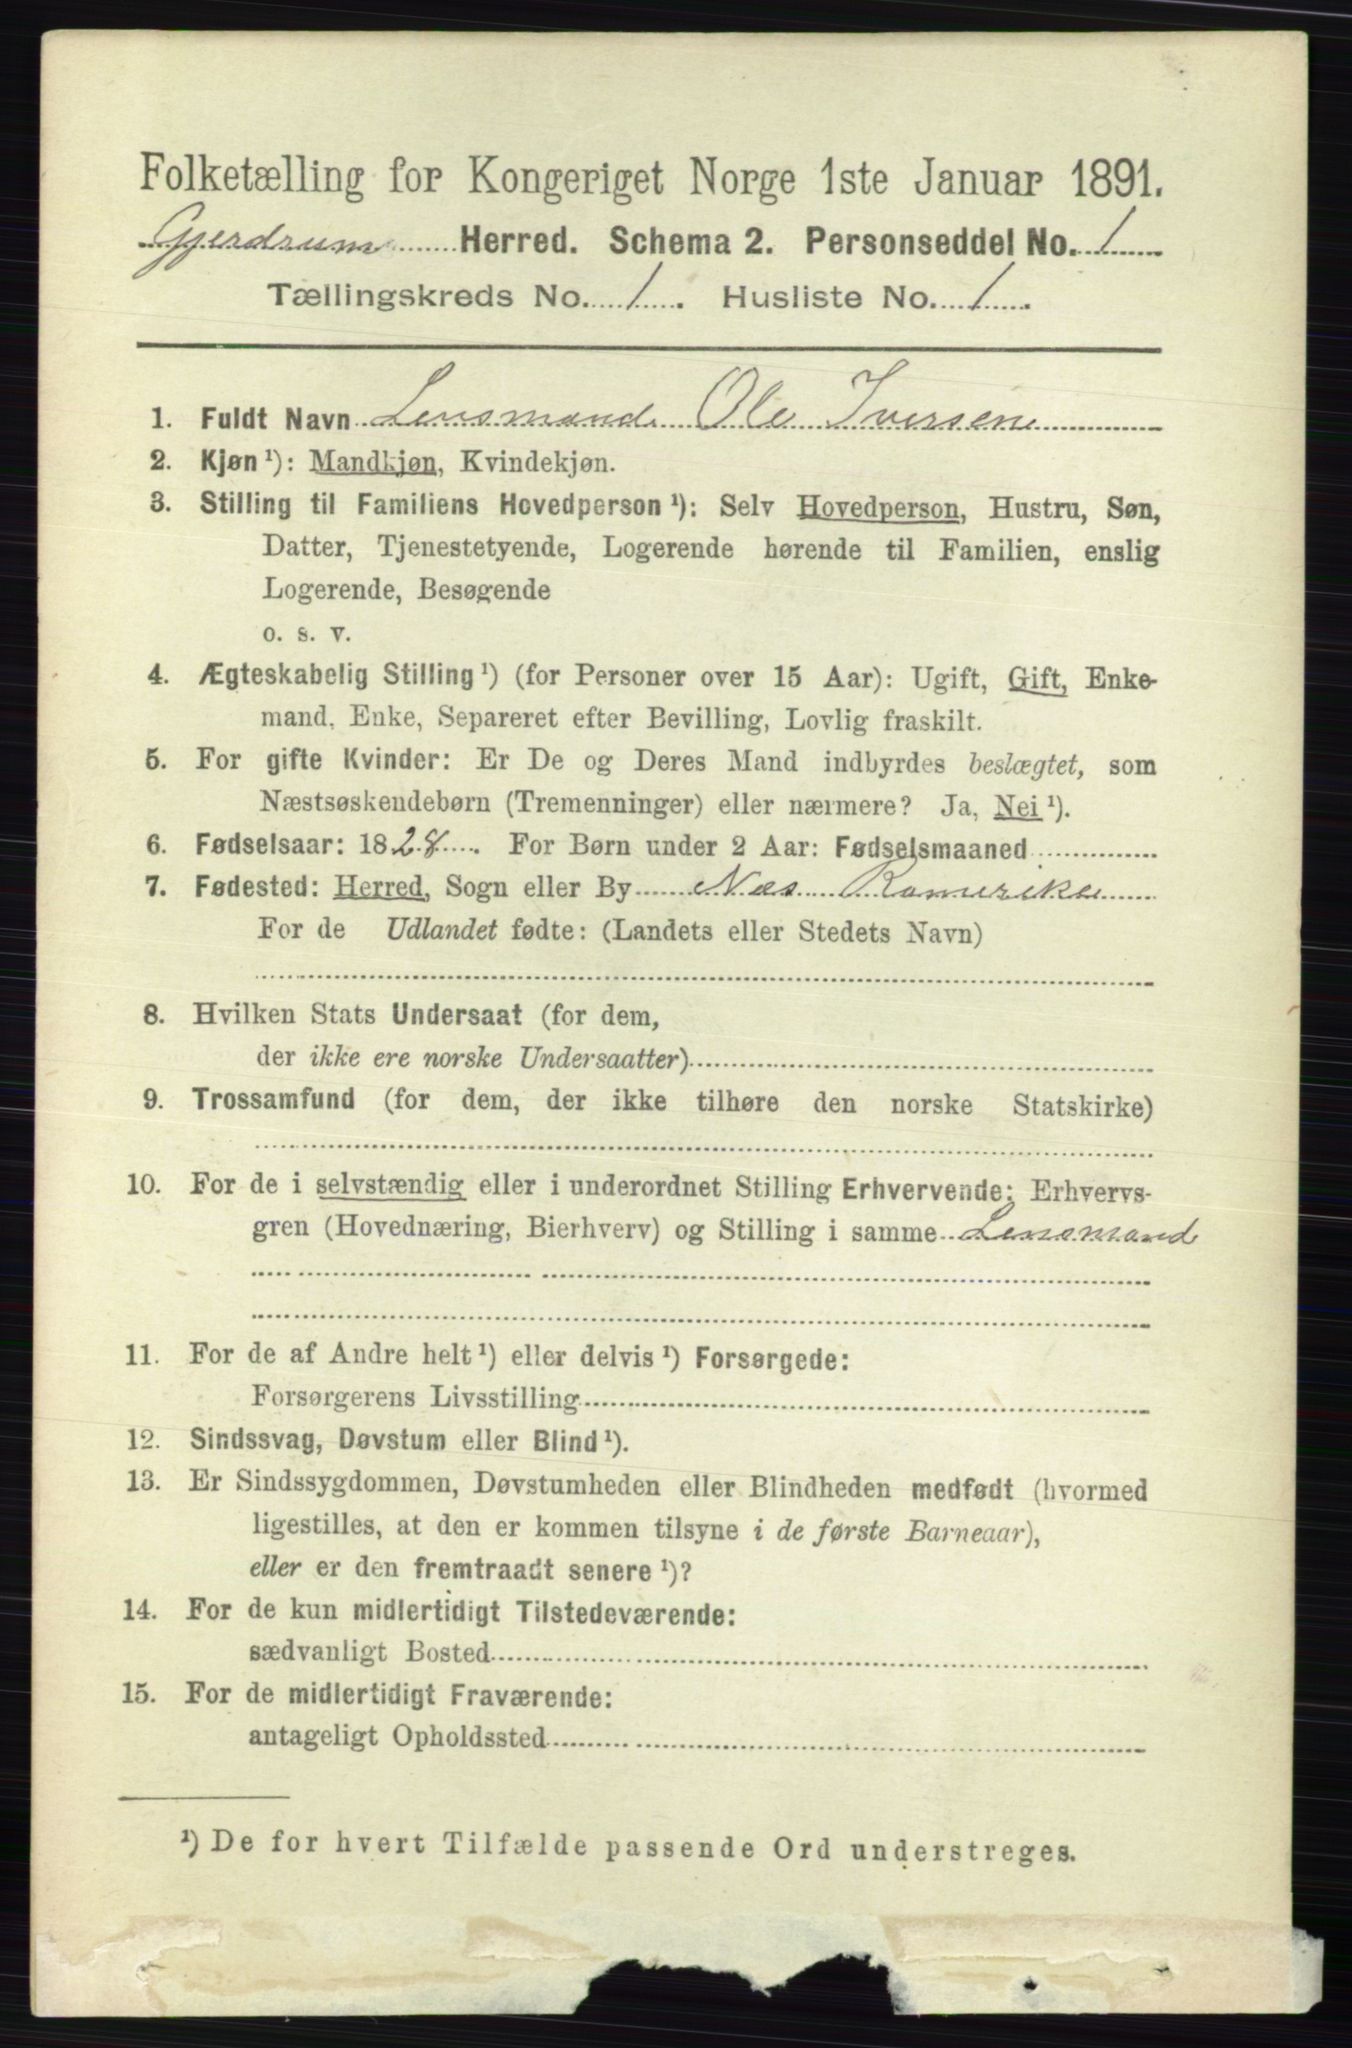 Folketælling for Kongeriget Norge 1ste Januar 1891.
Gjerdrum Herred. Schema 2. Personseddel No. 1
Tællingskreds No. 1. Husliste No. 1.
1. Fuldt Navn Lensmand Ole Iversen
2. Kjøn ¹): Mandkjøn, Kvindekjøn.
3. Stilling til Familiens Hovedperson ¹): Selv Hovedperson, Hustru, Søn,
Datter, Tjenestetyende, Logerende hørende til Familien, enslig
Logerende, Besøgende
o. s. v.
4. Ægteskabelig Stilling ¹) (for Personer over 15 Aar): Ugift, Gift, Enke-
mand, Enke, Separeret efter Bevilling, Lovlig fraskilt.
5. For gifte Kvinder: Er De og Deres Mand indbyrdes beslægtet, som
Næstsøskendebørn (Tremenninger) eller nærmere? Ja, Nei ¹).
6. Fødselsaar: 1828. For Børn under 2 Aar: Fødselsmaaned
7. Fødested: Herred, Sogn eller By Næs Romerike
For de Udlandet fødte: (Landets eller Stedets Navn)
8. Hvilken Stats Undersaat (for dem,
der ikke ere norske Undersaatter)
9. Trossamfund (for dem, der ikke tilhøre den norske Statskirke)
10. For de i selvstændig eller i underordnet Stilling Erhvervende: Erhvervs-
gren (Hovednæring, Bierhverv) og Stilling i samme Lensmand
11. For de af Andre helt ¹) eller delvis ¹) Forsørgede:
Forsørgerens Livsstilling
12. Sindssvag, Døvstum eller Blind ¹).
13. Er Sindssygdommen, Døvstumheden eller Blindheden medfødt (hvormed
ligestilles, at den er kommen tilsyne i de første Barneaar),
eller er den fremtraadt senere ¹)?
14. For de kun midlertidigt Tilstedeværende:
sædvanligt Bosted
15. For de midlertidigt Fraværende:
antageligt Opholdssted
¹) De for hvert Tilfælde passende Ord understreges.